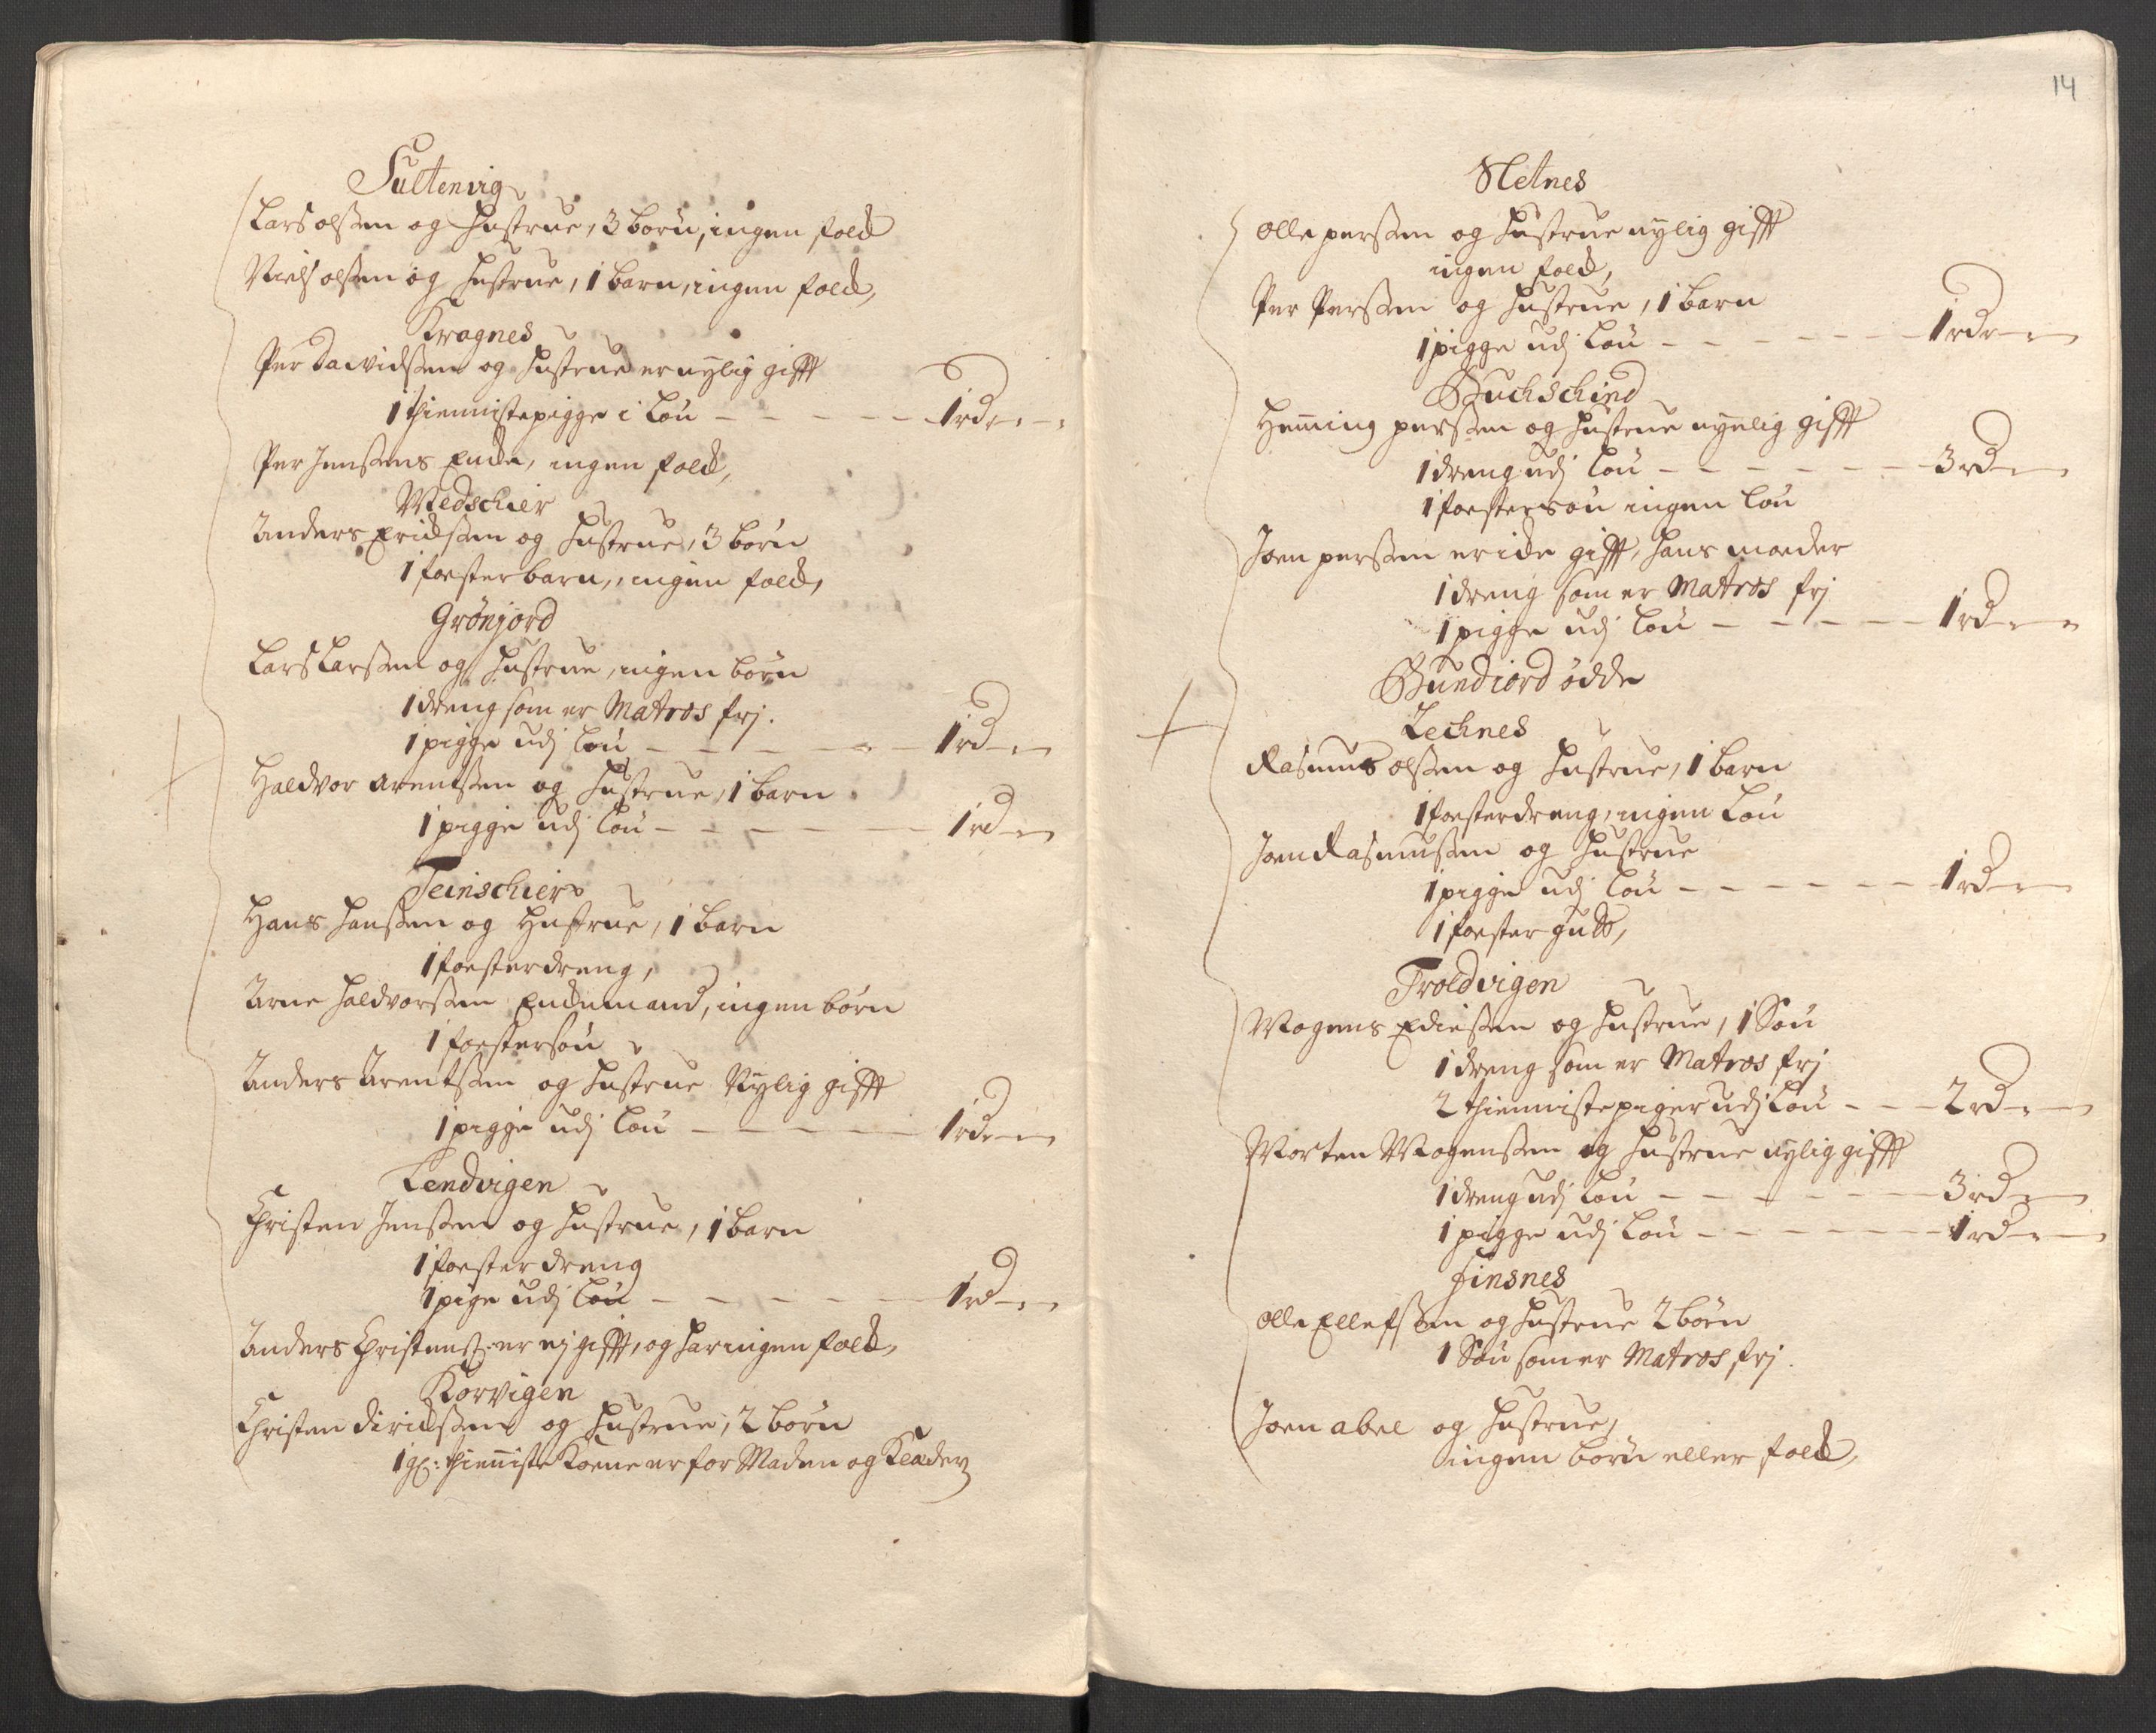 Sultenvig
Lars olssen og Hustrue, 3 børn, ingen folck
Niels olssen og Hustrue, 1 barn, ingen folck,
Kragnes
Per Davidssen og Hustrue er nylig gifft
1 thiennistepigge i Løn - - - - - 1 rd - -
Per Jenssens Encke, ingen folck,
Medschier
Anders Erichssen og Hustrue, 3 børn
1 foesterbarn, ingen folck,
Grönjord
Lars Larssen og Hustrue, ingen børn
1 dreng som er Matros frj.
1 pigge udj Løn - - - - - - 1 rd - -
Haldvor arentssen og Hustrue, 1 barn
1 pigge udj Løn - - - - - 1 rd - -
Teinschier
Hans Hanssen og Hustrue, 1 barn
1 foesterdreng,
Arne Haldvorssen Enckemand, ingen børn
1 foestersøn
Anders Arentssen og Hustrue Nylig gifft
1 pigge udj Løn - - - - - 1 rd - -
Lendvigen
Christen Jenssen og Hustrue, 1 barn
1 foester dreng
1 pige udj Løn - - - - - - 1 rd - -
Anders Christens. er ej gifft, og har ingen folck,
Korvigen
Christen dirichssen og Hustrue, 2 børn
1 gl: thienniste Koene er for Maden og Klæder
14
Sletnes
olle perssen og Hustrue nylig gifft
ingen folck,
Per Perssen og Hustrue, 1 barn
1 pigge udj Løn - - - - - - 1 rd - -
Buchschind
Heming perssen og Hustrue nyelig gifft
1 dreng udj Løn - - - - - - 3 rd - -
1 foestersøn ingen Løn
Joen perssen er icke gifft, hans moeder
1 dreng som er Matros frj
1 pigge udj Løn - - - - - 1 rd - -
Bundiord ödde
Lechnes
Rasmus olssen og Hustrue, 1 barn
1 foesterdreng, ingen Løn
Joen Rasmussen og Hustrue
1 pigge udj Løn - - - - - - 1 rd - -
1 foester gutt,
Troldvigen
Mogens Edissen og Hustrue, 1 Søn
1 dreng som er Matros frj
2 thiennistepiger udj Løn - - - 2 rd - -
Morten Mogenssen og Hustrue nylig gifft
1 dreng udj Løn - - - - - - 3 rd - -
1 pigge udj Løn - - - - - - 1 rd - -
Finsnes
olle Ellefssen og Hustrue 2 børn
1 Søn som er Matros frj.
Joen abel og Hustrue,
ingen børn eller folck,